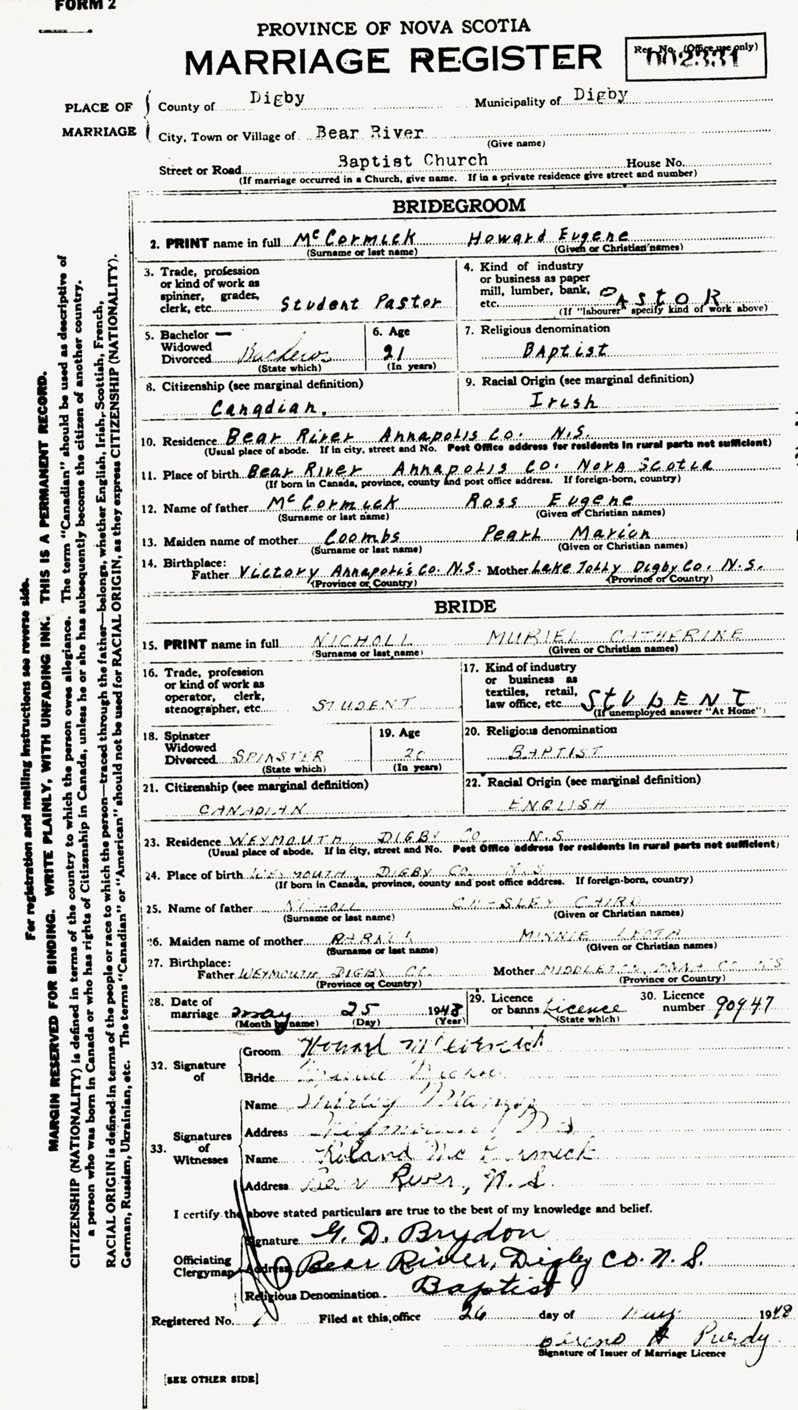 FORM 2
PROVINCE OF NOVA SCOTIA
MARRIAGE REGISTER
Reg. No. (Office use only)
002331
PLACE OF MARRIAGE
County of Digby Municipality of Digby
City, Town or Village of Bear River
(Give name)
Street or Road Baptist Church House No.
(If marriage occurred in a Church, give name. If in a private residence give street and number)
BRIDEGROOM
2. PRINT name in full McCormick Howard Eugene
(Surname or last name) (Given or Christian names)
3. Trade, profession or kind of work as spinner, grades, clerk, etc. Student Pastor
4. Kind of industry or business as paper mill, lumber, bank, etc. PASTOR
(If "labourer" specify kind of work above)
5. Bachelor Widowed Divorced Bachelor
(State which)
6. Age 21
(In years)
7. Religious denomination
BAptist
8. Citizenship (see marginal definition)
Canadian.
9. Racial Origin (see marginal definition)
Irish
10. Residence Bear River Annapolis Co. N.S.
(Usual place of abode. If in city, street and No. Post Office address for residents in rural parts not sufficient)
11. Place of birth Bear River Annapolis Co. Nova Scotia
(If born in Canada, province, county and post office address. If foreign-born, country)
12. Name of father McCormick Ross Eugene
(Surname or last name) (Given or Christian names)
13. Maiden name of mother Coombs Pearl Marion
(Surname or last name) (Given or Christian names)
14. Birthplace:
Father Victory Annapolis Co. N.S. Mother Lake Jolly Digby Co. N.S.
(Province or Country) (Province or Country)
BRIDE
15. PRINT name in full NICHOLL MURIEL CATHERINE
(Surname or last name) (Given or Christian names)
16. Trade, profession or kind of work as operator, clerk, stenographer, etc. STUDENT
17. Kind of industry or business as textiles, retail, law office, etc. STUDENT
(If unemployed answer "At Home")
18. Spinster Widowed Divorced SPINSTER
(State which)
19. Age 20
(In years)
20. Religious denomination
BAPTIST
21. Citizenship (see marginal definition)
CANADIAN
22. Racial Origin (see marginal definition)
ENGLISH
23. Residence WEYMOUTH, DIGBY CO N.S
(Usual place of abode. If in city, street and No. Post Office address for residents in rural parts not sufficient)
24. Place of birth WEYMOUTH, DIGBY CO. N.S
(If born in Canada, province, county and post office address. If foreign-born, country)
25. Name of father NICHOLL
(Surname or last name) (Given or Christian names)
26. Maiden name of mother MINNIE
(Surname or last name) (Given or Christian names)
27. Birthplace:
Father WEYMOUTH DIGBY CO. Mother MIDDLETON CO N S
(Province or Country) (Province or Country)
28. Date of marriage May 25 1948
(Month by name) (Day) (Year)
29. Licence or banns Licence
(State which)
30. Licence number 90947
32. Signature of
Groom Howard McCormick
Bride Muriel Nicholl
33. Signatures of Witnesses
Name Shirley
Address Weymouth, N S
Name Roland McCormick
Address Bear River, N.S.
I certify the above stated particulars are true to the best of my knowledge and belief.
Officiating Clergyman
Signature G. D. Brydon
Address Bear River, Digby Co. N.S.
Religious Denomination Baptist
Registered No. Filed at this office 26 day of May 1948
Purdy
Signature of Issuer of Marriage Licence
[SEE OTHER SIDE]
For registration and mailing instructions see reverse side.
MARGIN RESERVED FOR BINDING. WRITE PLAINLY, WITH UNFADING INK. THIS IS A PERMANENT RECORD.
CITIZENSHIP (NATIONALITY) is defined in terms of the country to which the person owes allegiance. The term "Canadian" should be used as descriptive of
a person who was born in Canada or who has rights of Citizenship in Canada, unless he or she has subsequently become the citizen of another country.
RACIAL ORIGIN is defined in terms of the people or race to which the person—traced through the father—belongs, whether English, Irish, Scottish, French,
German, Russian, Ukrainian, etc. The terms "Canadian" or "American" should not be used for RACIAL ORIGIN, as they express CITIZENSHIP (NATIONALITY).